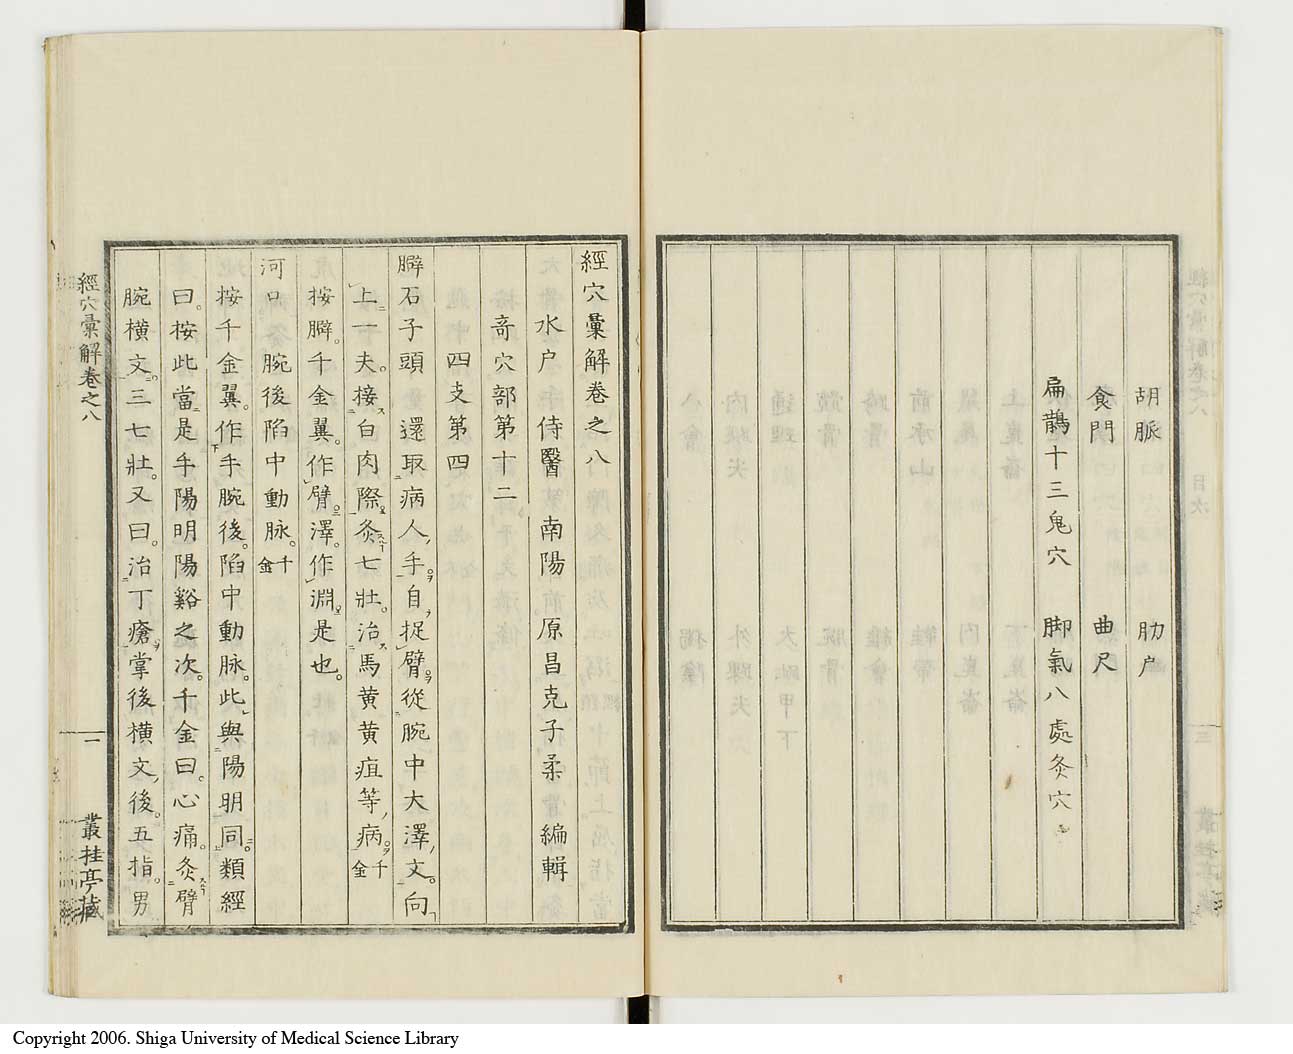 胡脈 肋户
食門 曲尺
扁鵲十三鬼穴 脚氣八處灸穴
經穴彙解卷之八
水户 侍醫 南陽 原昌克子柔 編輯
奇穴部第十二
四支第四
臂石子頭 還取病人手自捉臂從腕中大澤文向
上一夫接白肉際灸七壯治馬黄黄疸等病 千金
按臂千金翼作臂澤作淵是也
河口 腕後陷中動脉 千金
按千金翼作手腕後陷中動脉此與陽明同類經
曰按此當是手陽明陽谿之次千金曰心痛灸臂
腕橫文三七壯又曰治丁瘡掌後橫文後五指男
經穴彙解卷之八 一 叢桂亭藏
Copyright 2006. Shiga University of Medical Science Library